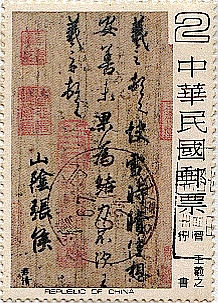 2
中華民國郵票
晉 王羲之 行書
羲之頓首快雪時晴佳想
安善未果為結力不次王
羲之頓首
山陰張侯
REPUBLIC OF CHINA